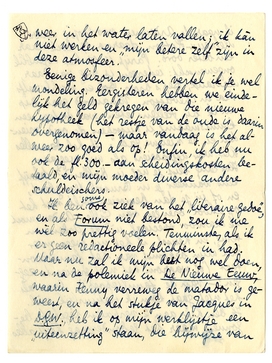 weer in het water laten vallen; ik kan
niet werken en „mijn betere zelf" zijn in
deze atmosfeer.
Eenige bizonderheden vertel ik je wel
mondeling. Eergisteren hebben we einde-
lijk het geld gekregen van die nieuwe
hypotheek (het restje van de oude is daarin
overgenomen) — maar vandaag is het al-
weer zoo goed als op! Enfin, ik heb nu
ook de fl 300.— aan scheidingskosten be-
taald, en mijn moeder diverse andere
schuldeischers.
Ik ben soms ook ziek van het „literaire gedoe",
en als Forum niet bestond, zou ik me
wel zoo prettig voelen. Tenminste, als ik
er geen redactioneele plichten in had.
Maar nu zal ik mijn best nog wel doen,
en na de polemiek in De Nieuwe Eeuw,
waarin Menny verreweg de matador is ge-
weest, en na het stukje van Jacques in
D.G.W. heb ik op mijn werklijstje een
„uiteenzetting" staan, die bijwijze van